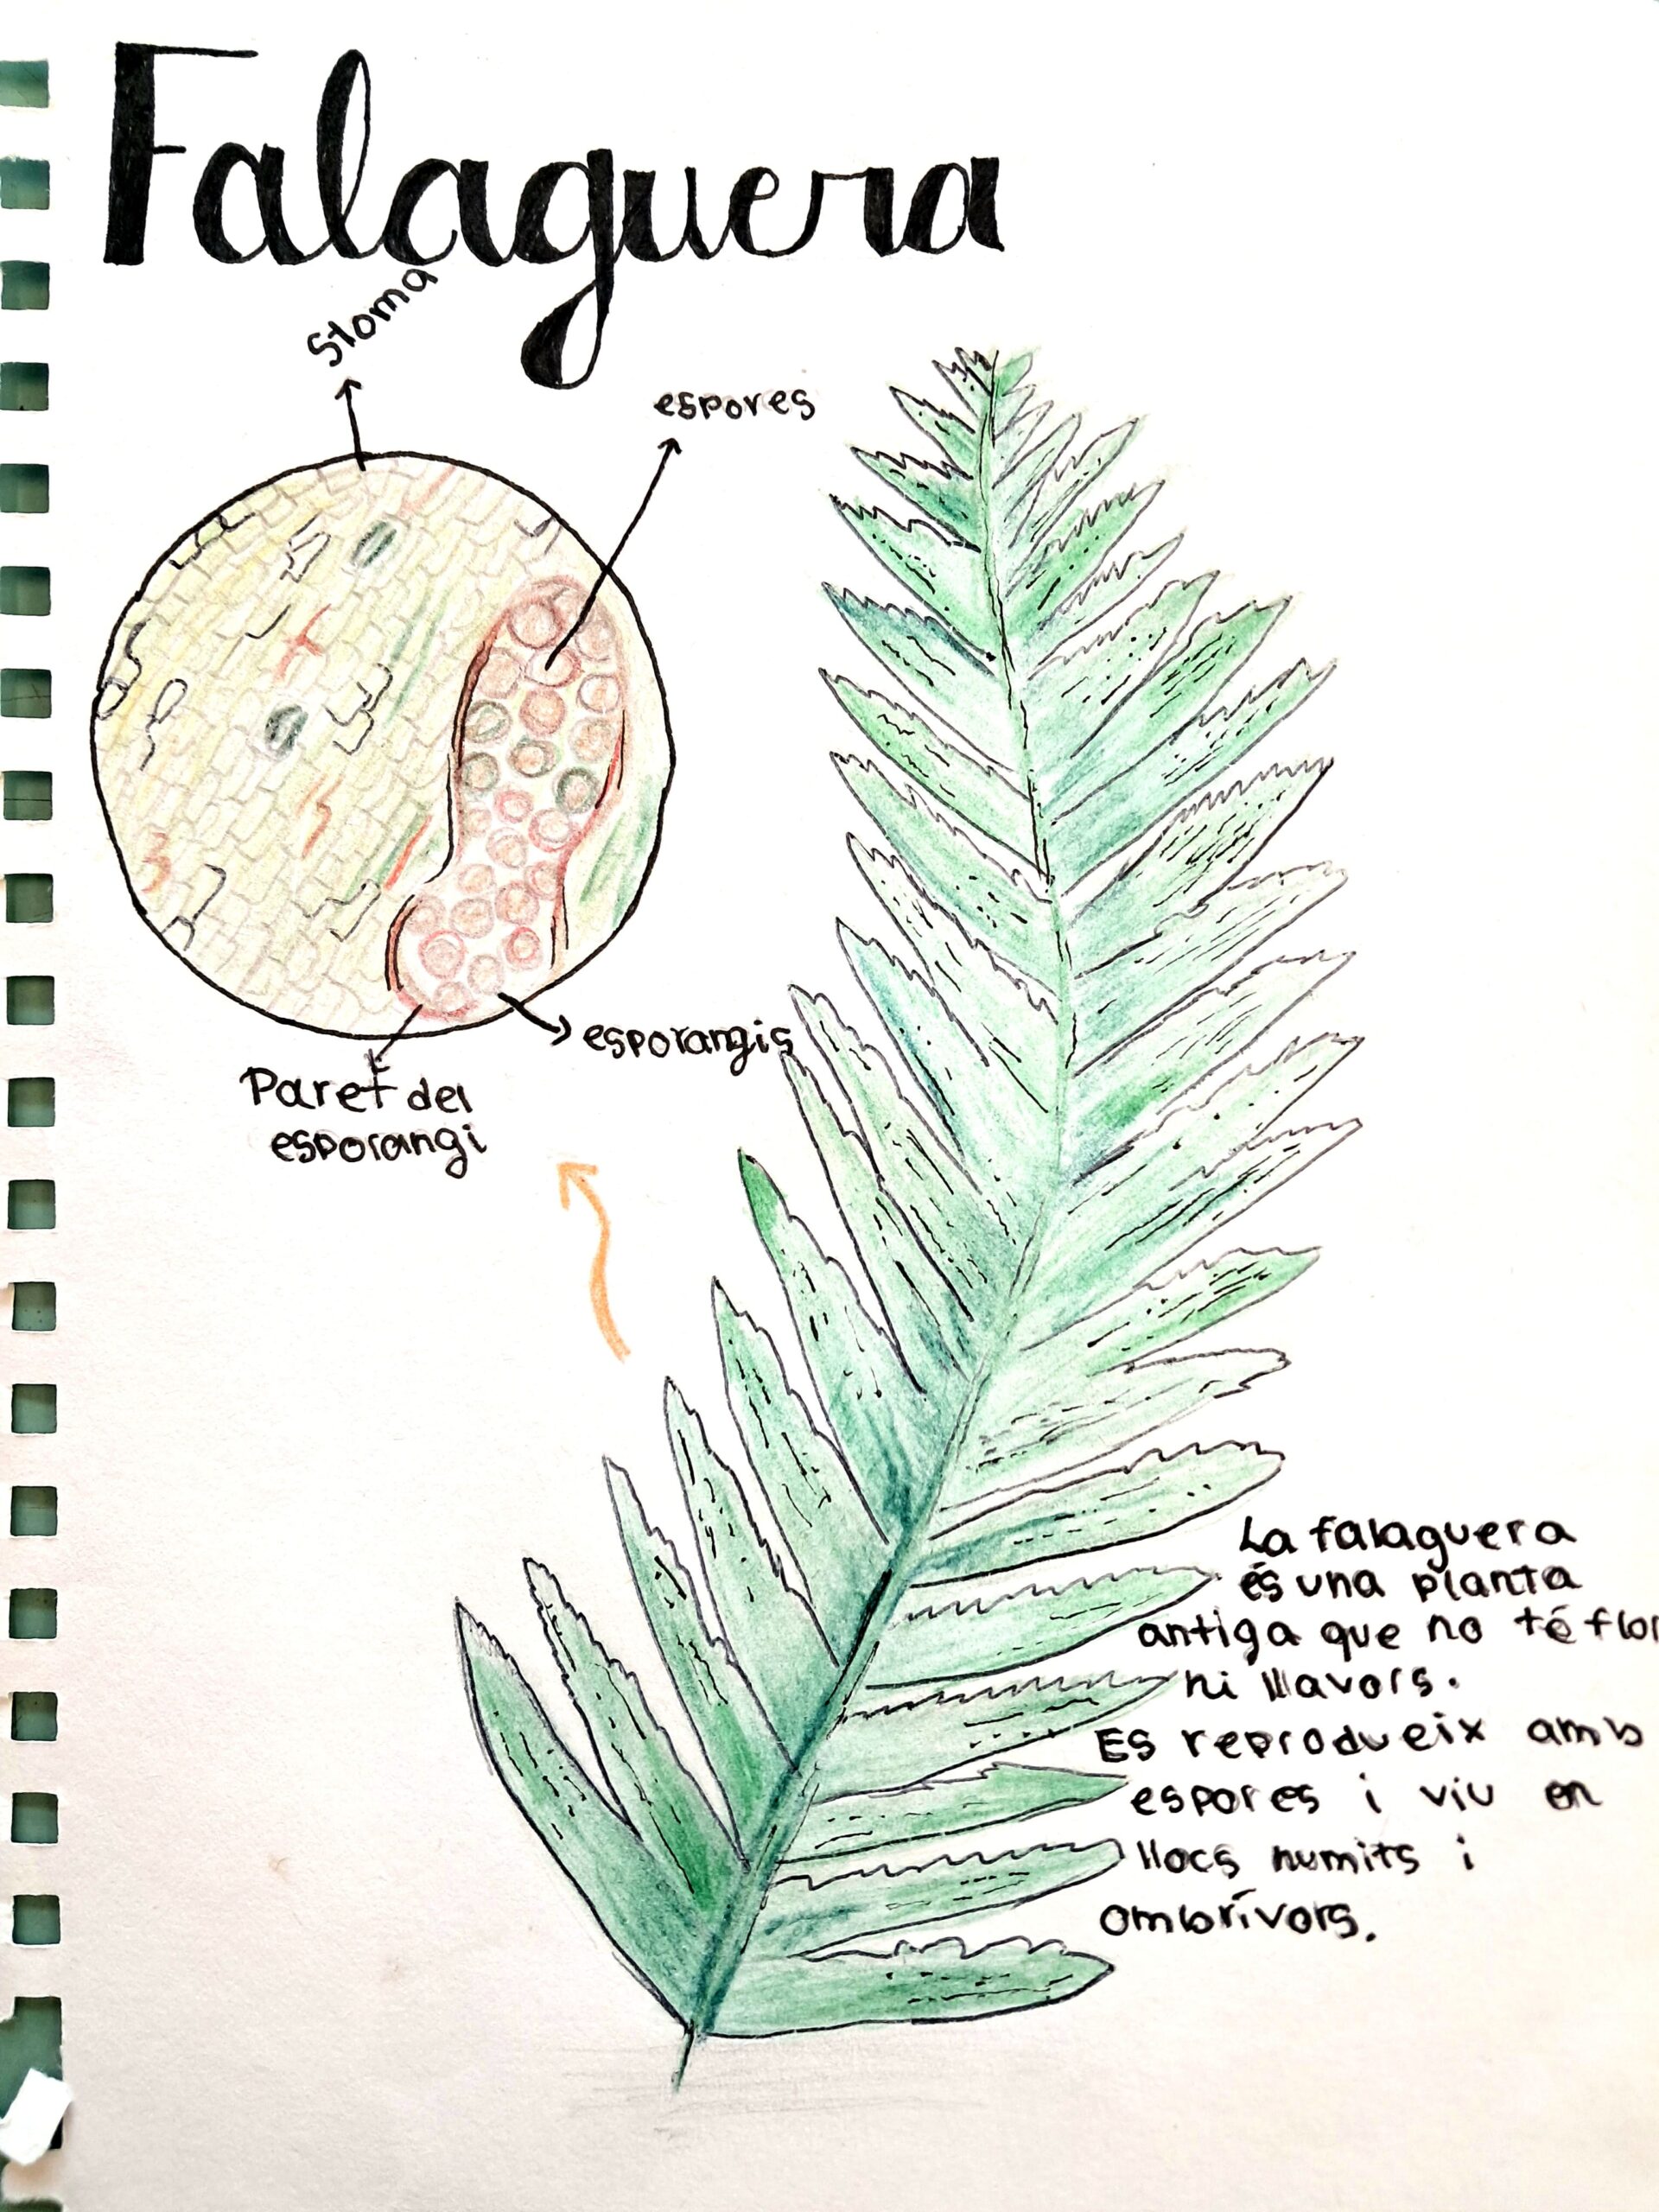 Falaguera
Stoma
espores
esporangis
Paret del
esporangi
La falaguera
és una planta
antiga que no té flor
ni llavors.
Es reprodueix amb
espores i viu en
llocs humits i
ombrívors.